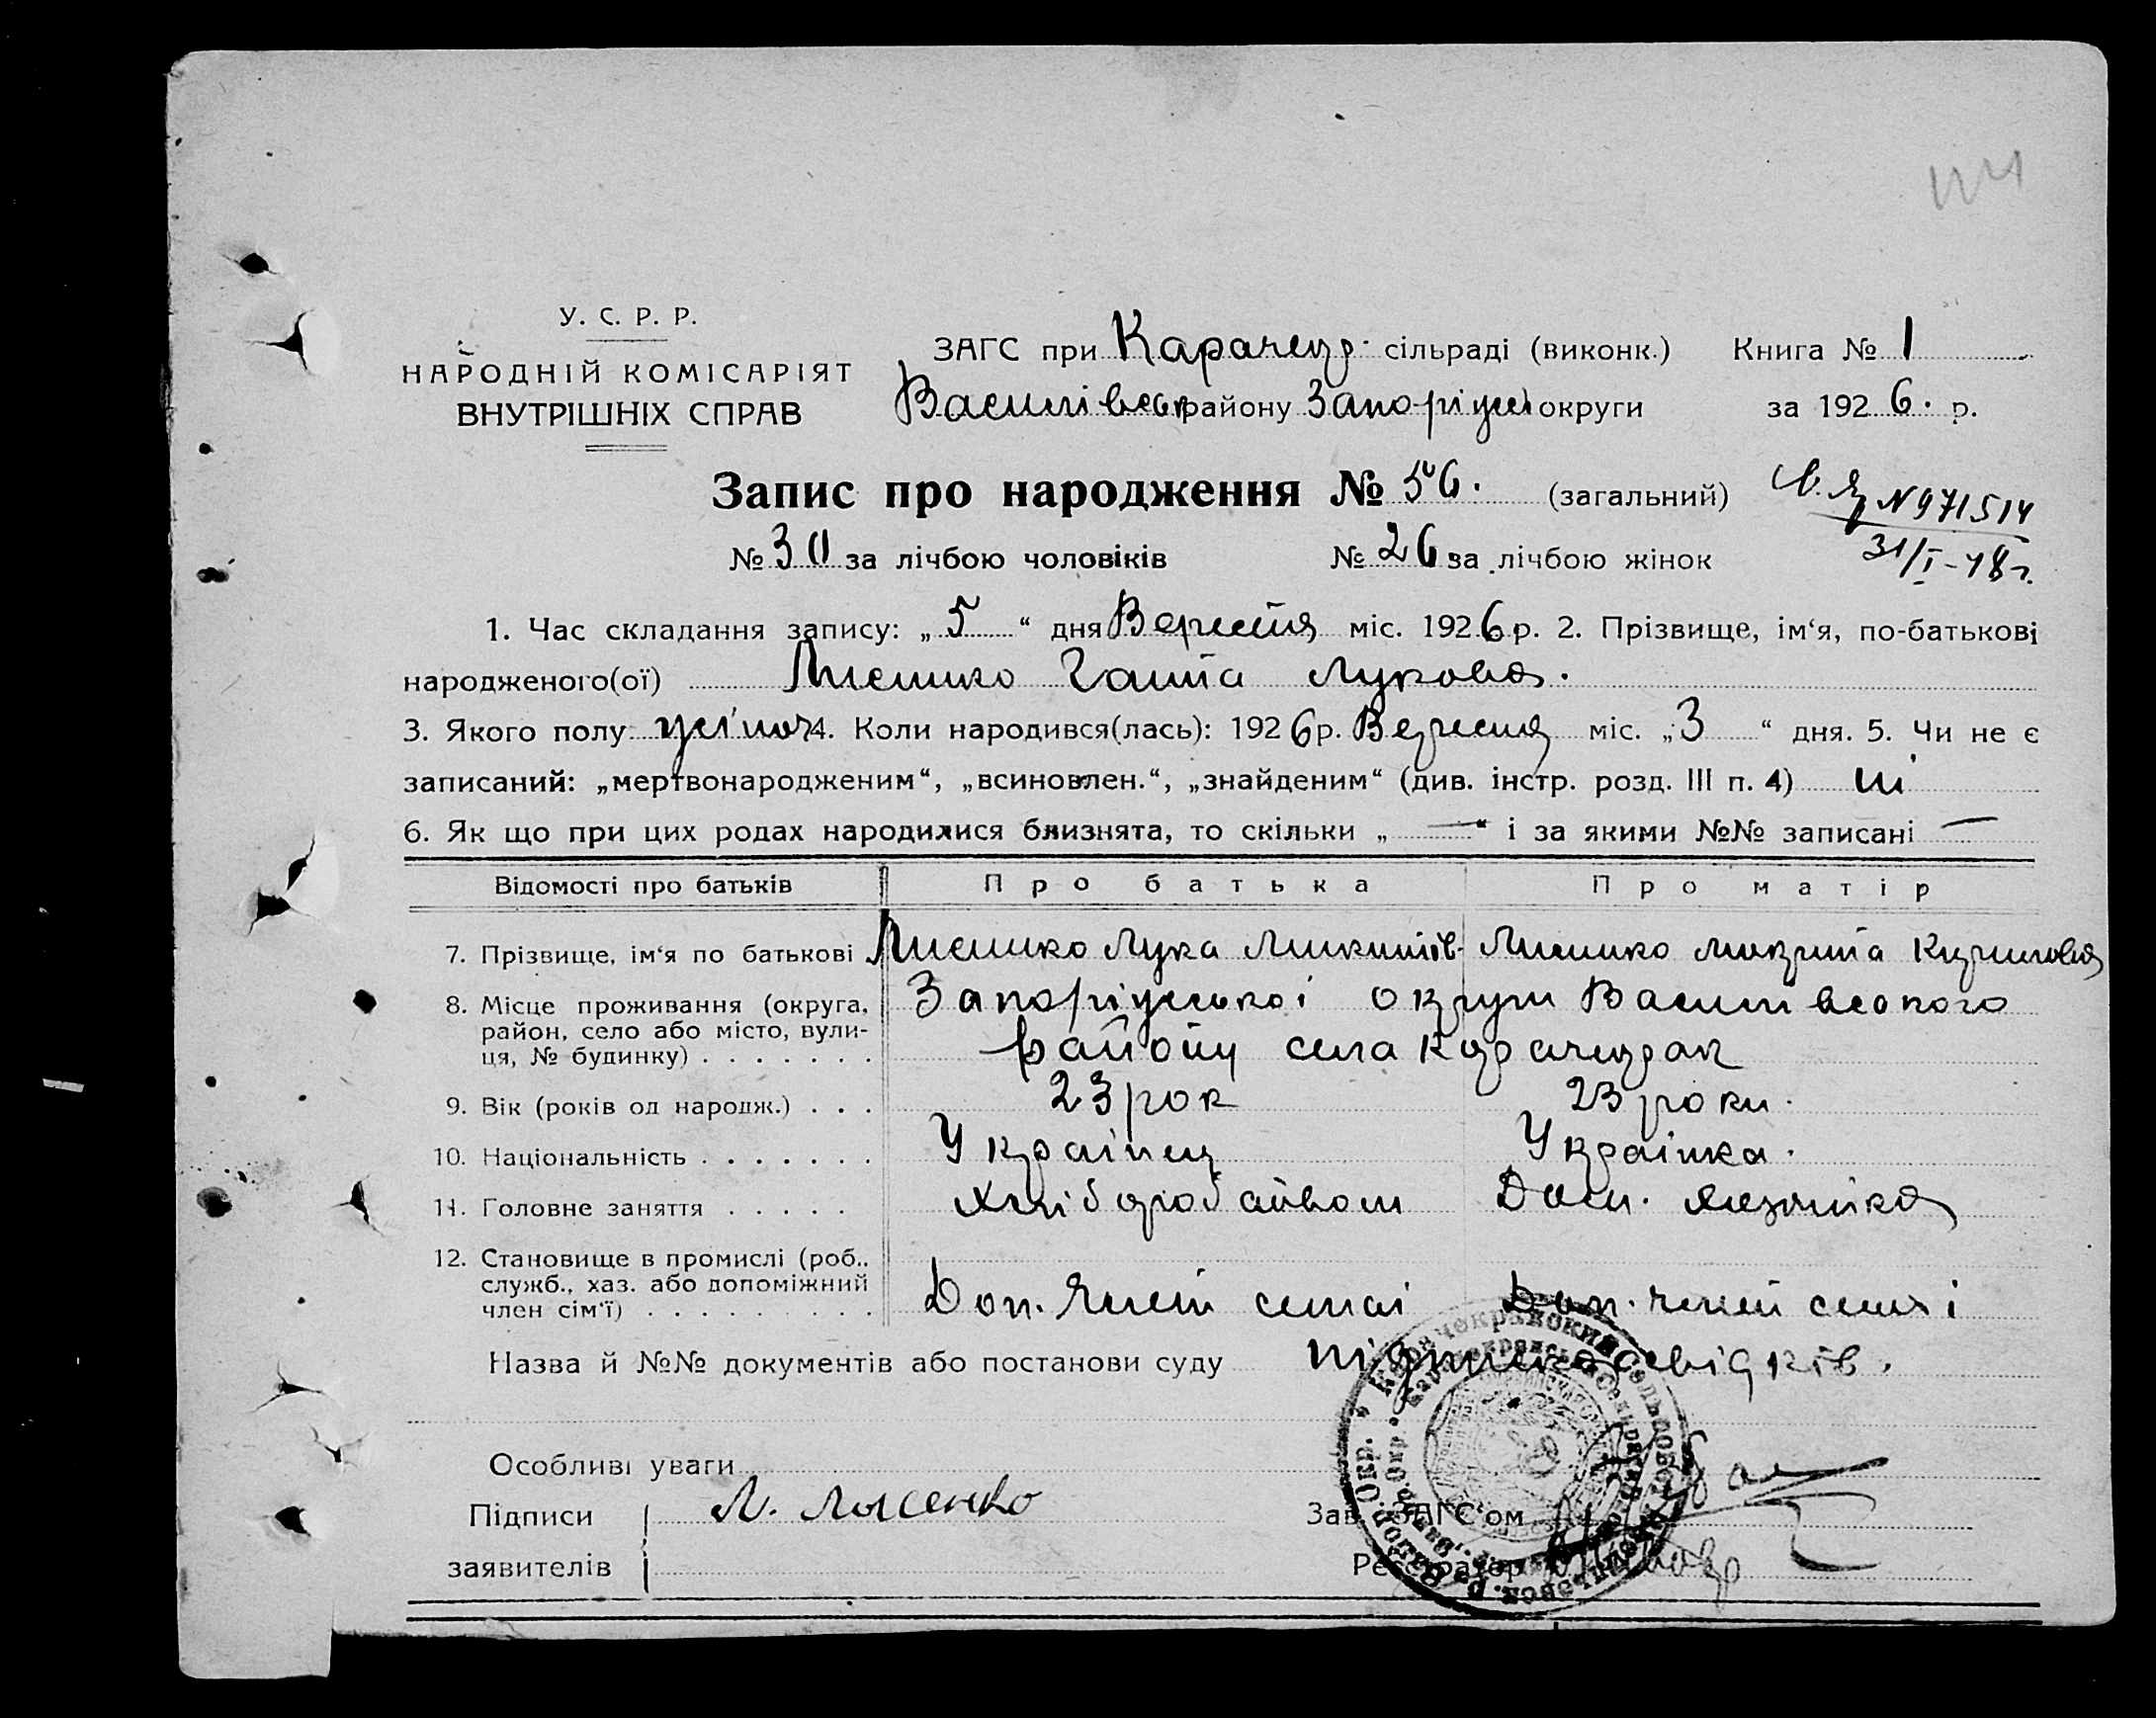 У. С. Р. Р.
НАРОДНІЙ КОМІСАРІЯТ
ВНУТРІШНІХ СПРАВ
ЗАГС при Карачекр. сільраді (виконк.) Книга № 1
Василівськ району Запоріжс округи за 1926. р.
Запис про народження № 56. (загальний)
№ 30 за лічбою чоловіків № 26 за лічбою жінок
N 971514
31/I-48 г.
1. Час складання запису: „5“ дня Вересня міс. 1926 р. 2. Прізвище, ім‘я, по-батькові
народженого(ої) Лисенко Ганна Лукова.
3. Якого полу: жіноч 4. Коли народився(лась): 1926 р. Вересня міс. „3“ дня. 5. Чи не є
записаний: „мертвонародженим“, „всиновлен.“, „знайденим“ (див. інстр. розд. III п. 4) ні
6. Як що при цих родах народилися близнята, то скільки „—“ і за якими №№ записані —
Відомості про батьків Про батька Про матір
7. Прізвище, ім‘я по батькові Лисенко Лука Микитів Лисенко Кирилова
8. Місце проживання (округа, Запоріжської округи Василівського
район, село або місто, вули-
ця, № будинку) . . . . . . . району села Карачекрак
9. Вік (років од народж.) . . . 23 рок 23 роки.
10. Національність . . . . . . . Українец Українка.
11. Головне заняття . . . . . Хліборобством Дом. хазяйка
12. Становище в промислі (роб.,
служб., хаз. або допоміжний
член сім‘ї) . . . . . . . . . . Доп. член семьі Доп. член семьі
Назва й №№ документів або постанови суду підписка свідків.
Особливі уваги
Підписи Л. Лысенко Зав. ЗАГС‘ом
заявителів Реєстратор